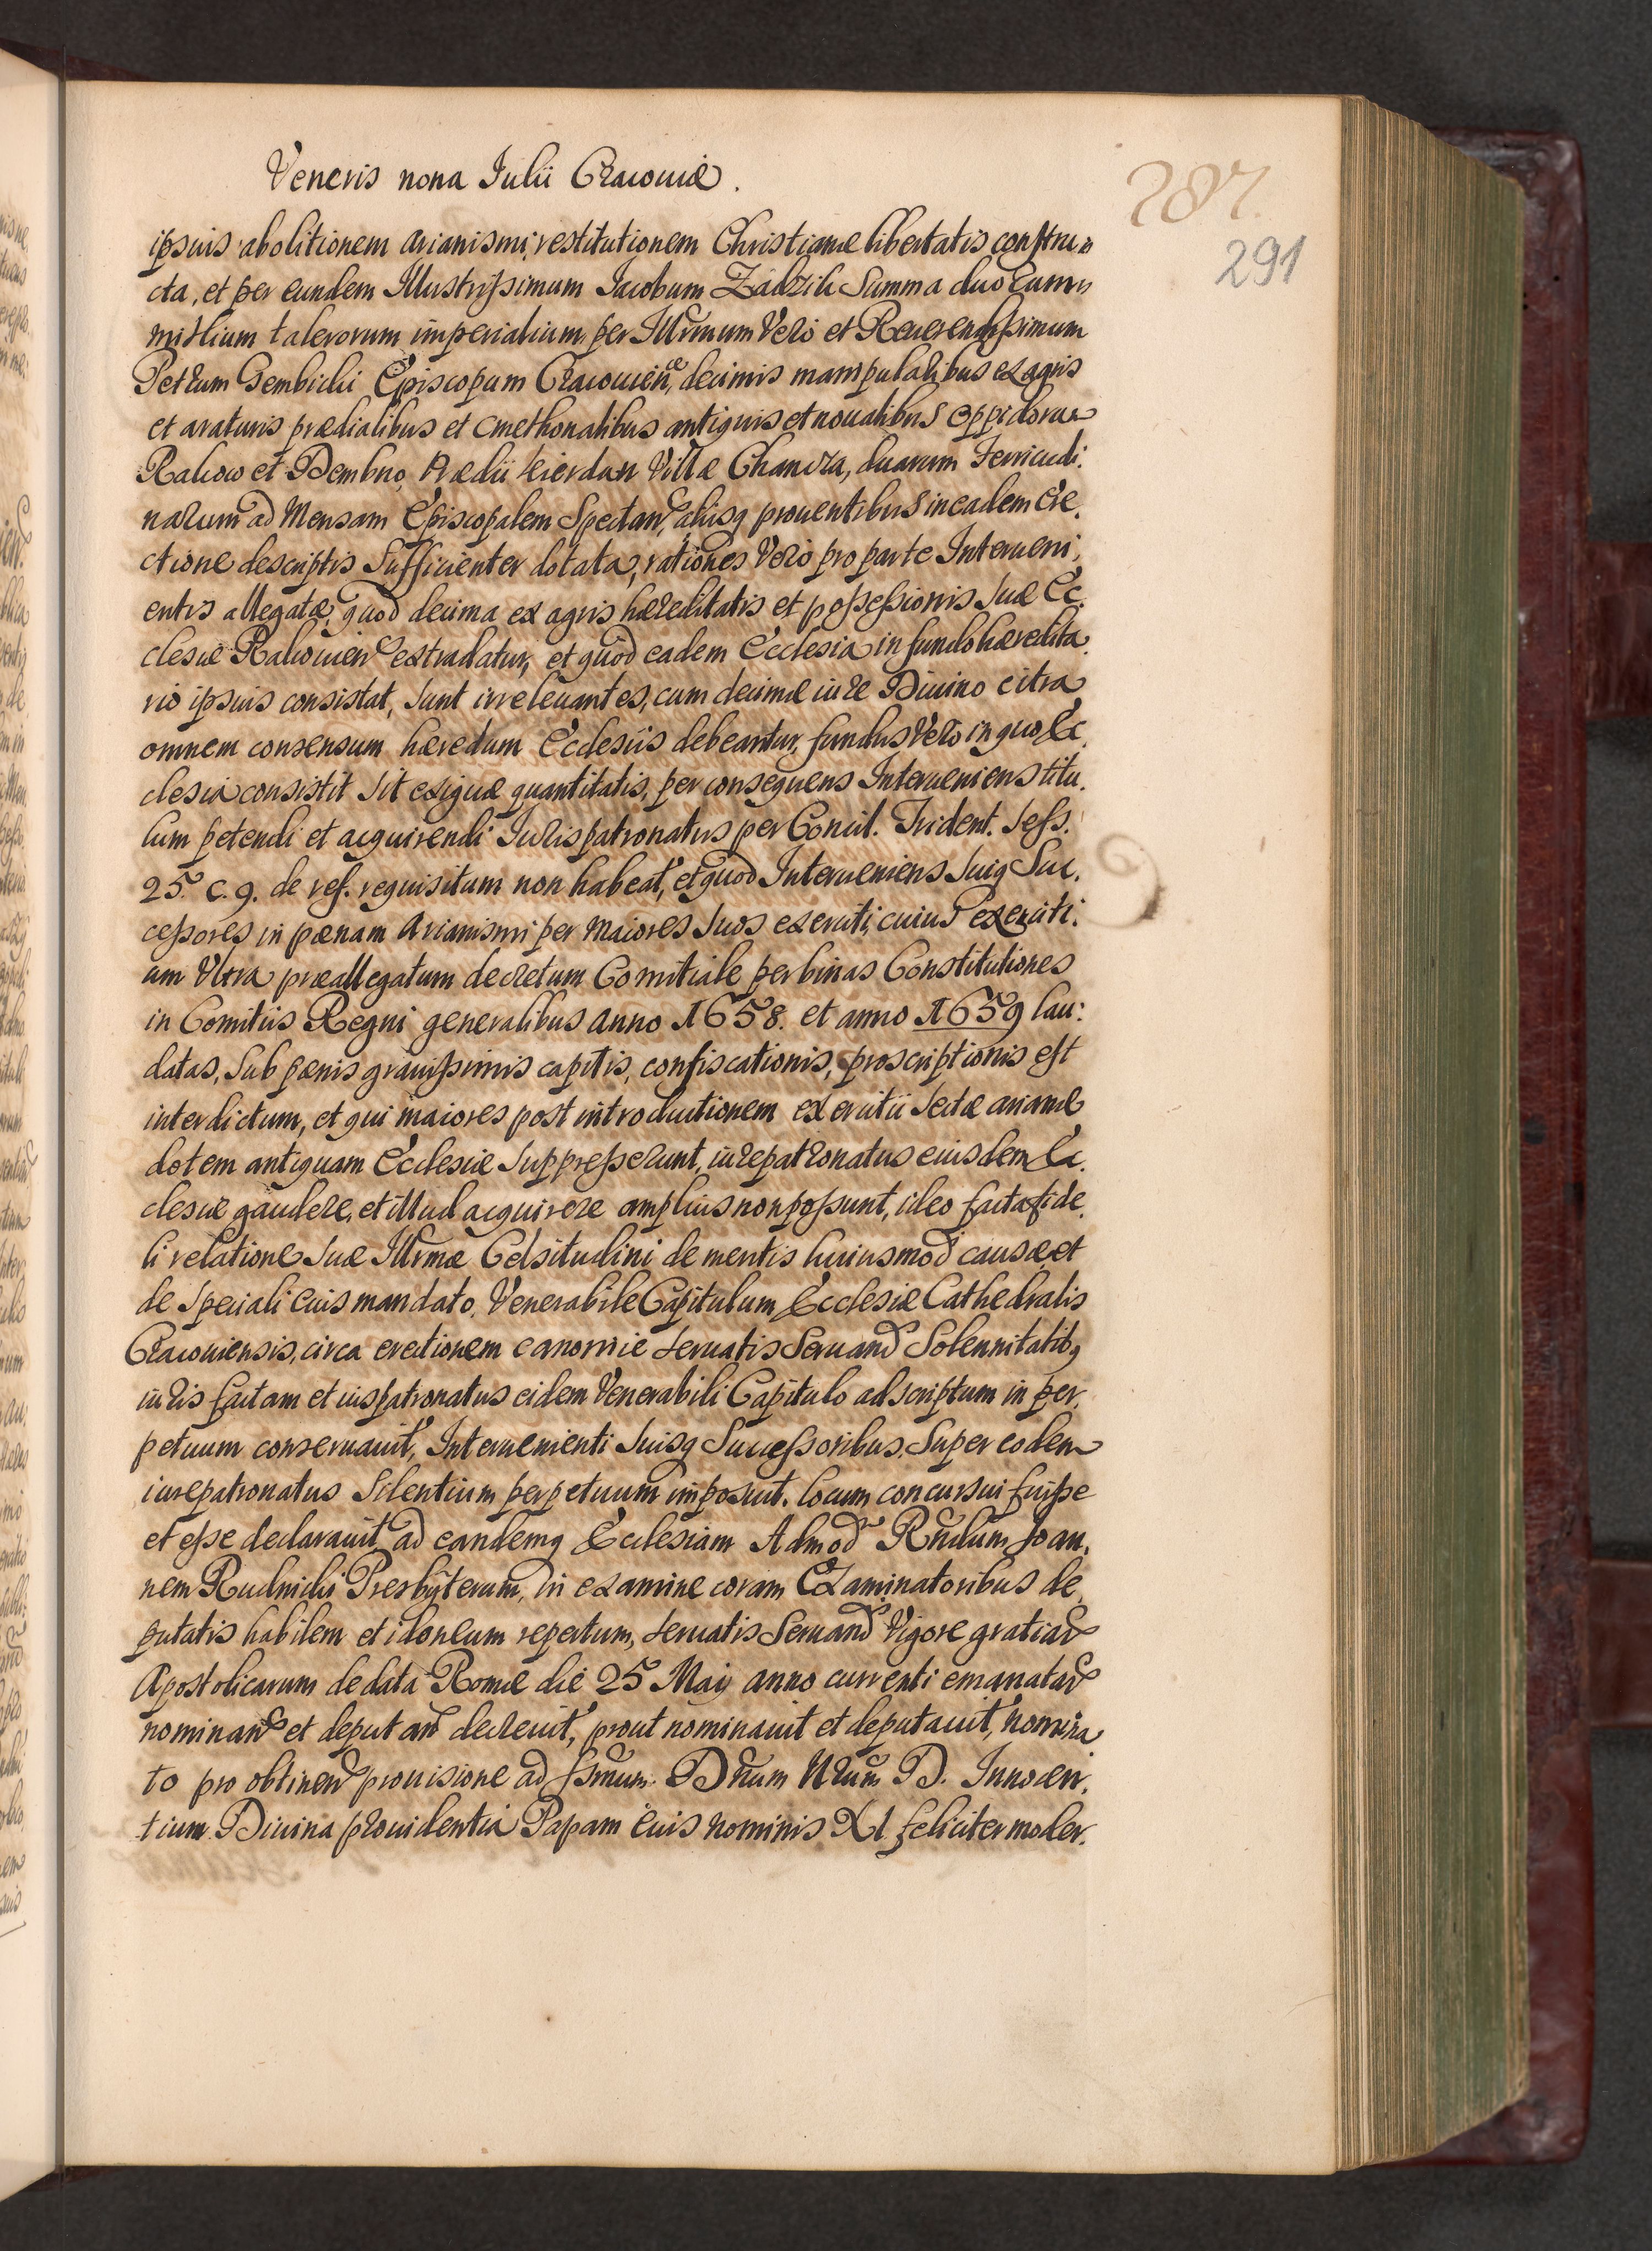 Veneris nona Julii Cracouiæ.
287.
291
ipsuis abolitionem arianismi, restitutionem Christianæ libertatis constru=
cta, et per eundem Illustrissimum Jacobum Zadzik Summa duodecim
millium talerorum imperialium, per Illrmum Vero et Reuerendissimum
Petrum Gembicki Episcopum Cracouien, decimis manipularibus ex agris
et araturis prædialibus et cmethonalibus antiquis et noualibus Oppidorum
Rakow et Dembno, Prædii Kierdan Villæ Chancza, duarum Ferricudi,
narum ad Mensam Episcopalem Spectan, aliisq prouentibus in eadem ere,
ctione descriptis Sufficienter dotata, rationes Vero pro parte Interueni,
entis allegatæ, quod decima ex agris hæreditatis et possessionis Suæ Ec,
clesiæ Rakouien extradatur, et quod eadem Ecclesia in fundo hæredita,
rio ipsuis consistat, Sunt irreleuantes, cum decimæ iure Diuino citra
omnem consensum hæredum Ecclesiis debeantur, fundus Vero in quo Ec,
clesia consistit Sit exiguæ quantitatis, per consequens Interueniens titu,
lum petendi et acquirendi Juris patronatus per Concil. Trident. Sess.
25. C. 9. de ref. requisitum non habeat, et quod Interueniens Suiq Suc,
cessores in pœnam Arianismi per Maiores Suos exerciti, cuius exerciti,
um Vltra præallegatum decretum Comitiale per binas Constitutiones
in Comitiis Regni generalibus anno 1658. et anno 1659 lau:
datas, Sub pœnis grauissimis capitis, confiscationis, proscriptionis est
interdictum, et qui maiores post introductionem exercitii Sectæ arianæ
dotem antiquam Ecclesiæ Suppresserunt, iurepatronatus eiusdem Ec,
clesiæ gaudere, et illud acquirere amplius non possunt, ideo facta fide,
li relatione Suæ Illrmæ Celsitudini de meritis huiusmod causæ, et
de Speciali eius mandato, Venerabile Capitulum Ecclesiæ Cathedralis
Cracouiensis, circa erectionem canonice Seruatis Seruand Solennitatibq
iuris factam et iuspatronatus eidem Venerabili Capitulo adscriptum in per,
petuum conseruauit, Interuenienti Suisq Successoribus, Super eodem
iurepatronatus Silentium perpetuum imposuit. locum concursui fuisse
et esse declarauit, ad eandemq Ecclesiam Admod Rndum Joan,
nem Rudnicki Presbyterum, in examine coram Examinatoribus de,
putatis habilem et idoneum repertum, Seruatis Seruand Vigore gratiar
Apostolicarum de data Romæ die 25 Maij anno currenti emanatar
nominand et deputand decreuit, prout nominauit et deputauit, nomina
to pro obtinen prouisione ad Ssmum Dnum Nrum D. Innocen,
tium Diuina prouidentia Papam eius nominis XI. feliciter moder,